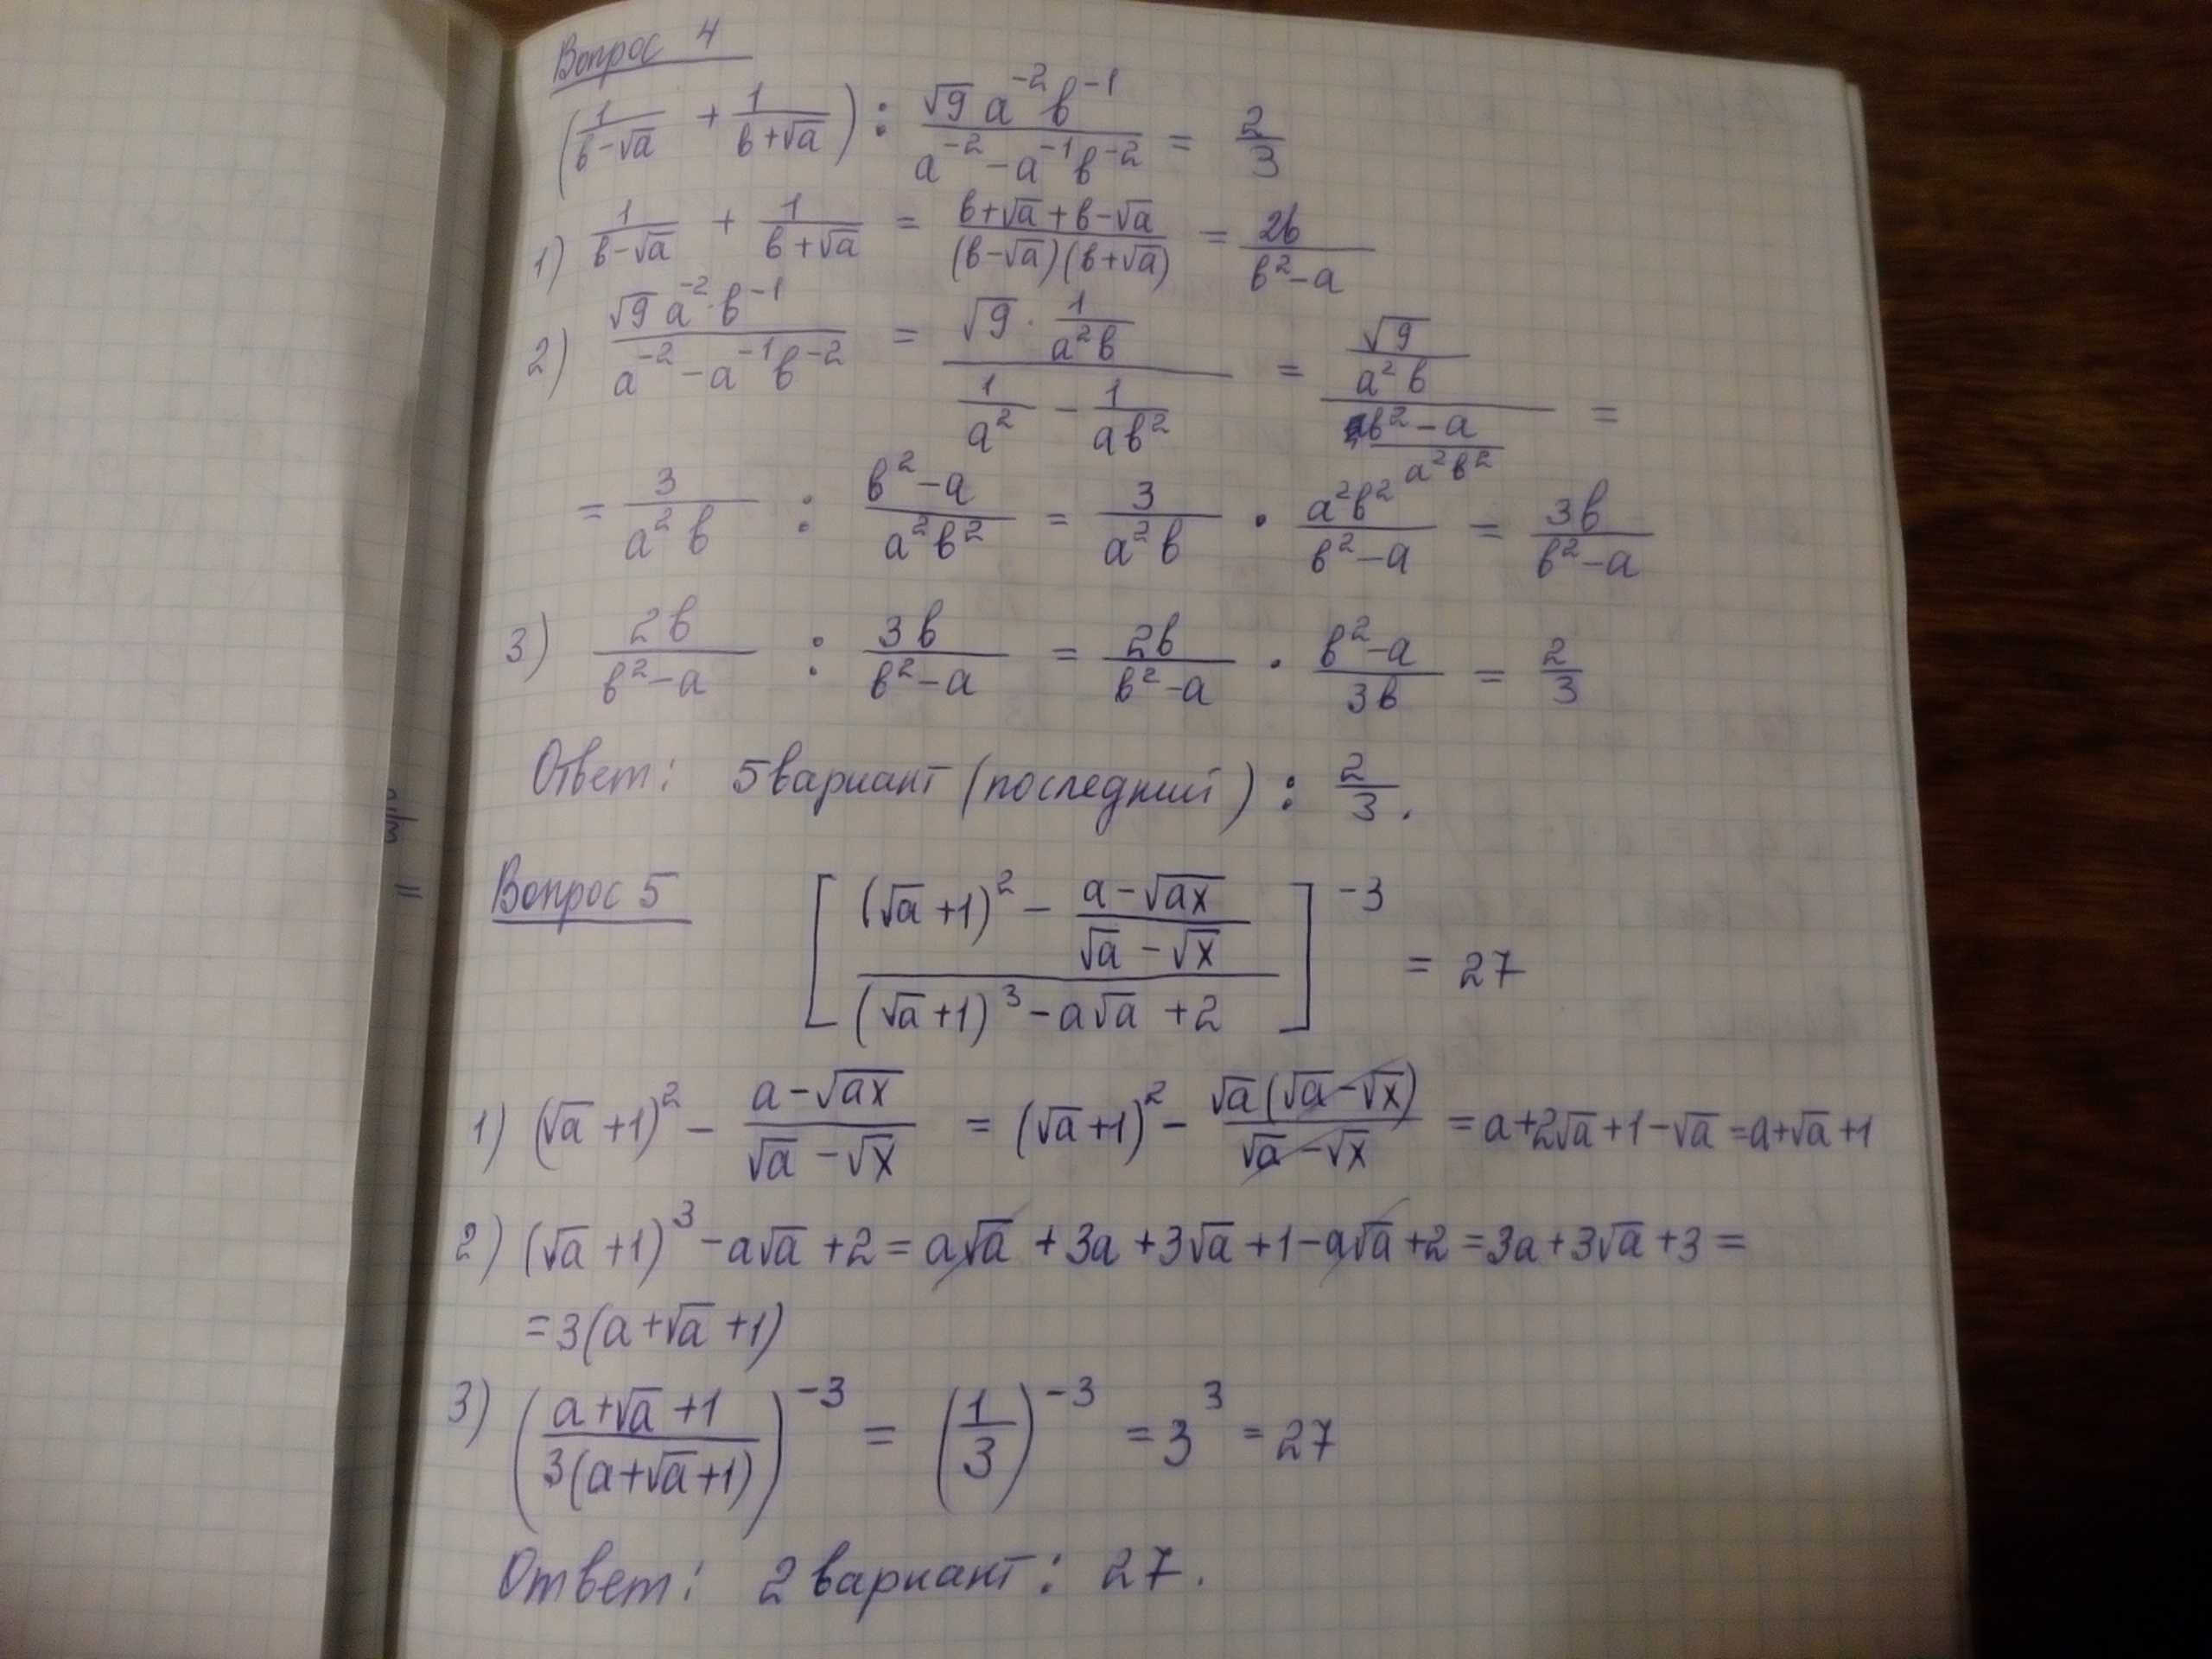 Вопрос 4
(1/(в-√a) + 1/(в+√a)) : (√9 a⁻² в⁻¹)/(a⁻² - a⁻¹в⁻²) = 2/3
1) 1/(в-√a) + 1/(в+√a) = (в+√a+в-√a)/((в-√a)(в+√a)) = 2в/(в²-a)
2) (√9 a⁻²·в⁻¹)/(a⁻² - a⁻¹в⁻²) = (√9 · 1/(a²в))/(1/a² - 1/(aв²)) = (√9/(a²в))/((в²-a)/(a²в²)) =
= 3/(a²в) : (в²-a)/(a²в²) = 3/(a²в) · (a²в²)/(в²-a) = 3в/(в²-a)
3) 2в/(в²-a) : 3в/(в²-a) = 2в/(в²-a) · (в²-a)/3в = 2/3
Ответ: 5 вариант (последний) : 2/3.
Вопрос 5 [((√a+1)² - (a-√ax)/(√a-√x))/((√a+1)³ - a√a + 2)]⁻³ = 27
1) (√a+1)² - (a-√ax)/(√a-√x) = (√a+1)² - (√a(√a-√x))/(√a-√x) = a+2√a+1-√a = a+√a+1
2) (√a+1)³ - a√a + 2 = a√a + 3a + 3√a + 1 - a√a + 2 = 3a + 3√a + 3 =
= 3(a+√a+1)
3) ((a+√a+1)/(3(a+√a+1)))⁻³ = (1/3)⁻³ = 3³ = 27
Ответ: 2 вариант: 27.